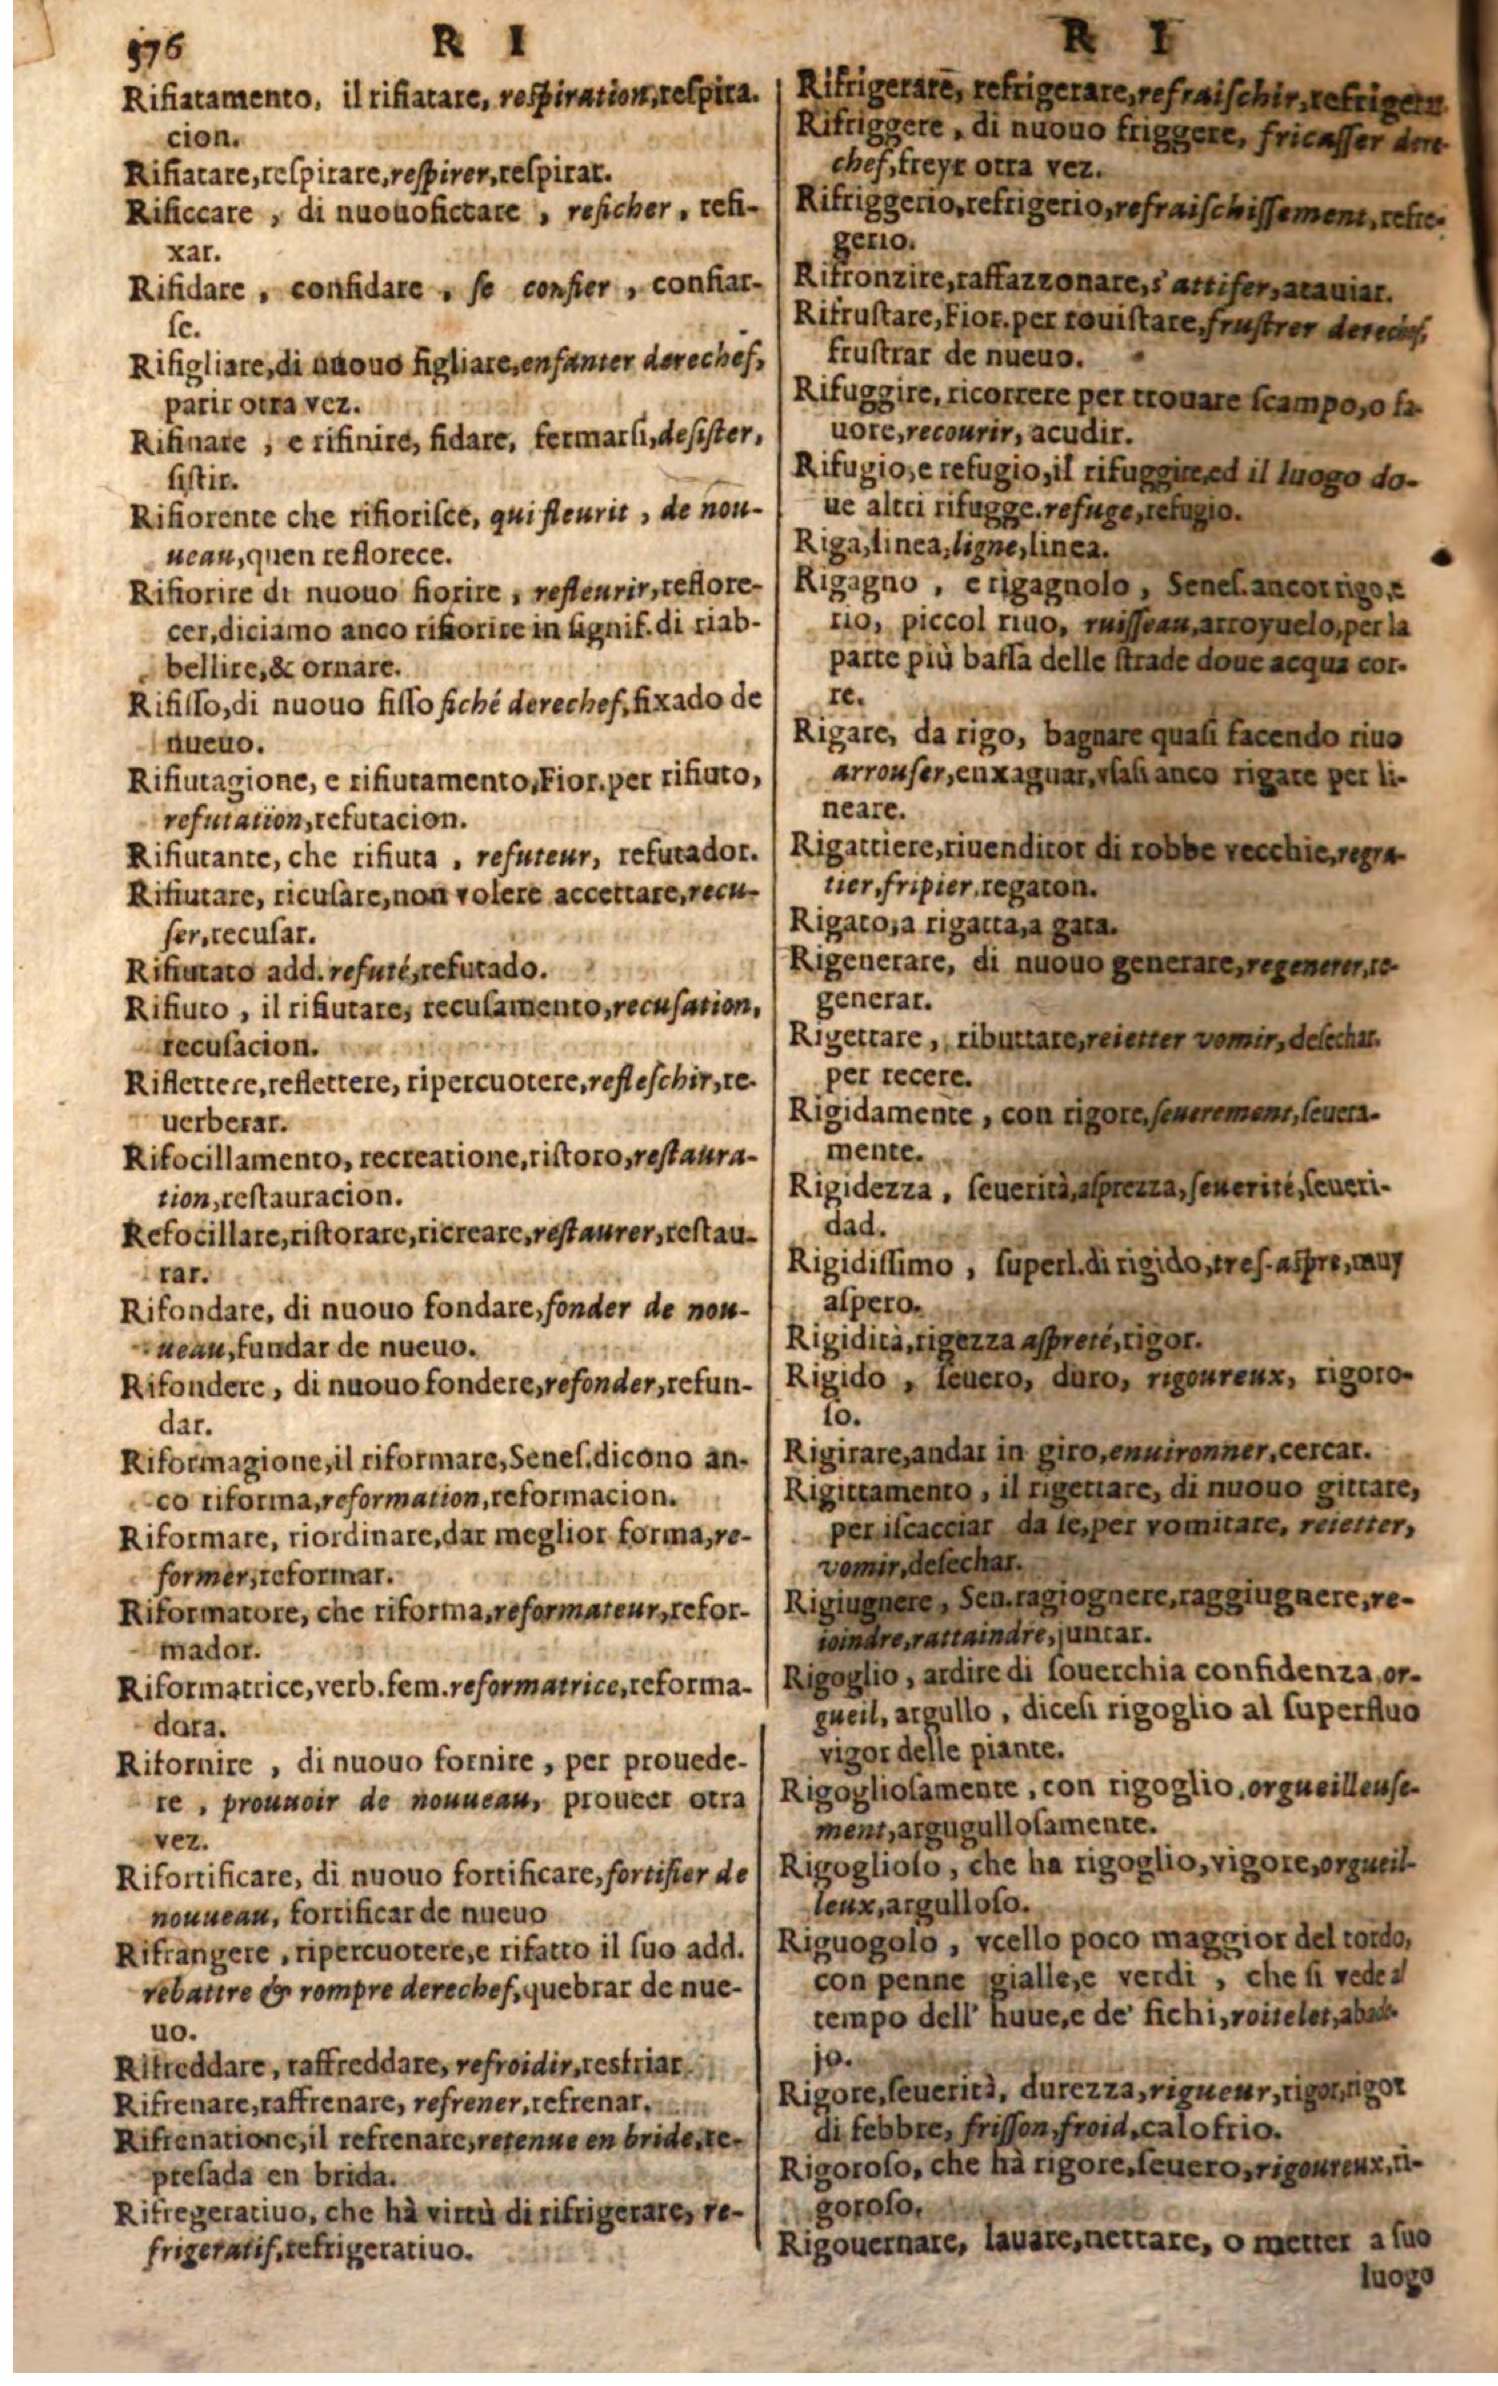 576
R I
Rifiatamento, il rifiatare, respiration, respira-
cion.
Rifiatare, reſpirare, reſpirer, reſpirar.
Rificcare , di nuouoficcare , reficher , refi-
xar.
Rifidare , confidare , ſe confier , confiar-
ſe.
Rifigliare, di nuouo figliare, enfanter derechef,
parir otra vez.
Rifinare , e rifinire, fidare, fermarſi, deſiſter,
ſiſtir.
Rifiorente che rifioriſce, qui fleurit , de nou-
ueau, quen reflorece.
Rifiorire di nuouo fiorire , refleurir, reflore-
cer, diciamo anco rifiorire in ſignif. di riab-
bellire, & ornare.
Rifiſſo, di nuouo fiſſo fiché derechef, fixado de
nueuo.
Rifiutagione, e rifiutamento, Fior. per rifiuto,
refutaiion, refutacion.
Rifiutante, che rifiuta , refuteur, refutador.
Rifiutare, ricuſare, non volere accettare, recu-
ſer, recuſar.
Rifiutato add. refuté, refutado.
Rifiuto , il rifiutare, recuſamento, recuſation,
recuſacion.
Riflettere, reflettere, ripercuotere, refleſchir, re-
uerberar.
Rifocillamento, recreatione, riſtoro, reſtaura-
tion, reſtauracion.
Refocillare, riſtorare, ricreare, reſtaurer, reſtau-
rar.
Rifondare, di nuouo fondare, fonder de nou-
ueau, fundar de nueuo.
Rifondere , di nuouo fondere, refonder, refun-
dar.
Riformagione, il riformare, Seneſ. dicono an-
co riforma, reformation, reformacion.
Riformare, riordinare, dar meglior forma, re-
former, reformar.
Riformatore, che riforma, reformateur, refor-
mador.
Riformatrice, verb. fem. reformatrice, reforma-
dora.
Rifornire , di nuouo fornire , per prouede-
re , prouuoir de nouueau, proueer otra
vez.
Rifortificare, di nuouo fortificare, fortifier de
nouueau, fortificar de nueuo
Rifrangere , ripercuotere, e rifatto il ſuo add.
rebattre & rompre derechef, quebrar de nue-
uo.
Rifreddare, raffreddare, refroidir, resfriar
Rifrenare, raffrenare, refrener, refrenar.
Rifrenatione, il refrenare, retenue en bride, re-
preſada en brida.
Rifregeratiuo, che hà virtù di rifrigerare, re-
frigeratif, refrigeratiuo.
R I
Rifrigerare, refrigerare, refraiſchir, refrigerar
Rifriggere , di nuouo friggere, fricaſſer dere-
chef, freyr otra vez.
Rifriggerio, refrigerio, refraiſchiſſement, refre-
gerio.
Rifronzire, raffazzonare, s'attifer, atauiar.
Rifruſtare, Fior. per rouiſtare, fruſtrer derechef,
fruſtrar de nueuo.
Rifuggire, ricorrere per trouare ſcampo, o fa-
uore, recourir, acudir.
Rifugio, e refugio, il rifuggire, ed il luogo do-
ue altri rifugge. refuge, refugio.
Riga, linea, ligne, linea.
Rigagno , e rigagnolo , Seneſ. ancor rigo, e
rio, piccol riuo, ruiſſeau, arroyuelo, per la
parte più baſſa delle ſtrade doue acqua cor-
re.
Rigare, da rigo, bagnare quaſi facendo riuo
arrouſer, enxaguar, vſaſi anco rigare per li-
neare.
Rigattiere, riuenditor di robbe vecchie, regra-
tier, fripier, regaton.
Rigato, a rigatta, a gata.
Rigenerare, di nuouo generare, regenerer, re-
generar.
Rigettare , ributtare, reietter vomir, deſechar.
per recere.
Rigidamente , con rigore, ſeuerement, ſeuera-
mente.
Rigidezza , ſeuerità, aſprezza, ſeuerité, ſeueri-
dad.
Rigidiſſimo , ſuperl. di rigido, treſ-aſpre, muy
aſpero.
Rigidità, rigezza aſpreté, rigor.
Rigido , ſeuero, duro, rigoureux, rigoro-
ſo.
Rigirare, andar in giro, enuironner, cercar.
Rigittamento , il rigettare, di nuouo gittare,
per iſcacciar da ſe, per vomitare, reietter,
vomir, deſechar.
Rigiugnere , Sen. ragiognere, raggiugnere, re-
ioindre, rattaindre, juntar.
Rigoglio , ardire di ſouerchia confidenza, or-
gueil, argullo , diceſi rigoglio al ſuperfluo
vigor delle piante.
Rigoglioſamente , con rigoglio, orgueilleuſe-
ment, argugulloſamente.
Rigoglioſo , che ha rigoglio, vigore, orgueil-
leux, argulloſo.
Riguogolo , vcello poco maggior del tordo,
con penne gialle, e verdi , che ſi vede al
tempo dell' huue, e de' fichi, roitelet, abade-
jo.
Rigore, ſeuerità, durezza, rigueur, rigor, rigor
di febbre, friſſon, froid, calofrio.
Rigoroſo, che hà rigore, ſeuero, rigoureux, ri-
goroſo.
Rigouernare, lauare, nettare, o metter a ſuo
luogo